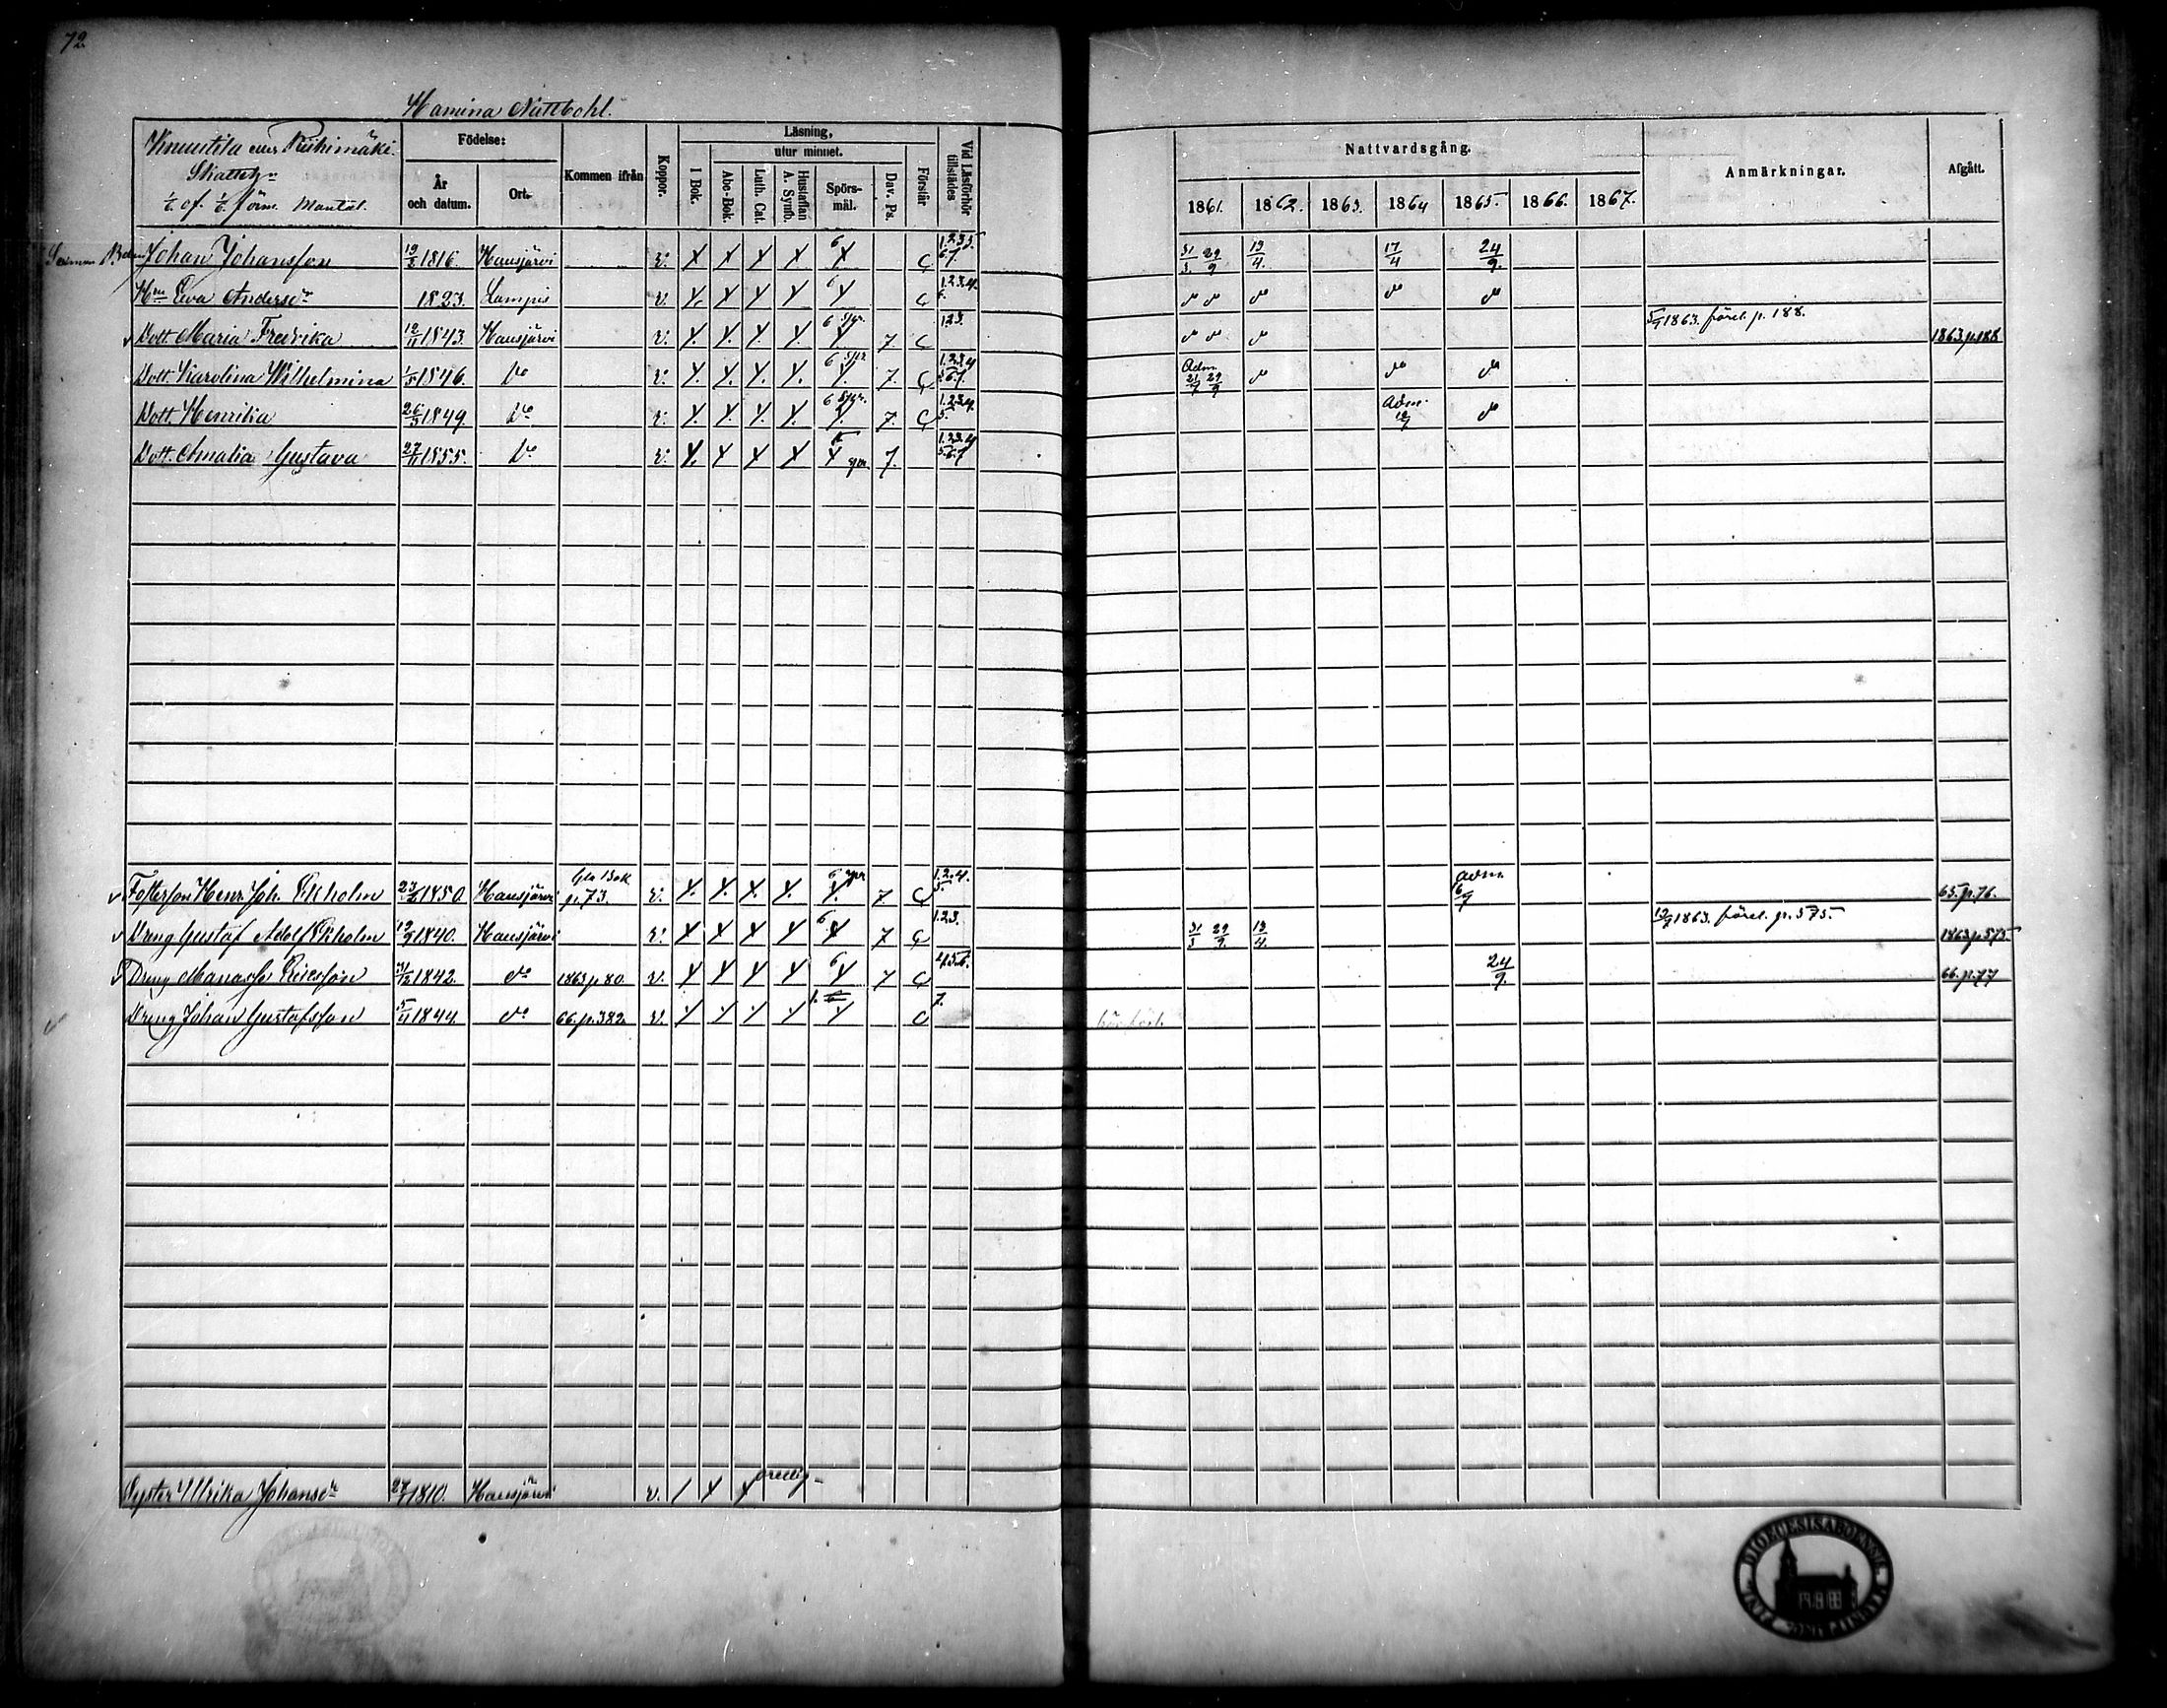 72
Hamina Nuttbohl.
Knuutila eller Riihimäki.
Skatteh:n
1/6 af 1/6 förm. Mantal.
Födelse:
År och datum.
Ort.
Kommen ifrån
Koppor.
Läsning,
utur minnet.
I Bok.
Abc-Bok.
Luth. Cat.
Hustaflan A. Symb.
Spörs-mål.
Dav. Ps.
Förstår
Vid Läsförhör tillstädes
Nattvardsgång.
1861. 1862. 1863. 1864 1865. 1866. 1867.
Anmärkningar.
Afgått.
Johan Johansson 19/3 1816. Hausjärvi v. 6 c 1.2.3.5 6.7. 31/3 29/9 19/4. 17/4 24/9.
H:n Eva Andersd:r 1823. Lampis v. 6 c 1.2.3.4. 6. do do do do do
Dott. Maria Fredrika 12/11 1843. Hausjärvi v. 6 spr. 7. c 1.2.3. do do do 5/9 1863. förel. p. 188. 1863.p.188
Dott. Karolina Wilhelmina 1/5 1846. Do v. 6 spr 7. c 1.2.3.4 5.6.7. Adm. 21/7 29/9 do do do
Dott. Henrika 26/3 1849. Do v. 6 spr. 7. c 1.2.3.4. 5. Adm. do
Dott. Amalia Gustava 27/11 1855. Do v. spr. 7. 1.2.3.4 5.6.7
Fosterson Henr. Joh. Ekholm 1850. Hausjärvi Gla Bok p.73. v. 6 spr 7 c 1.2.4. 5. adm. 6/7 65.p.76.
Dreng Gustaf Adolf Ekholm 12/9 1840. Hausjärvi v. 6 7 c 1.2.3. 31/3 29/9. 19/4. 1863. förel. p. 575. 1863.p.575
Dreng Manasse Ericsson 31/12 1842. do 1863 p.80. v. 6 7 c 4.5.6. 24/9. 66.p.77
Dreng Johan Gustafsson 5/4 1844. do 66.p.382. v. c 7.
Syster Ulrika Johansd:r 27/7 1810. Hausjärvi v.
DIOECESIS ABOENSIS